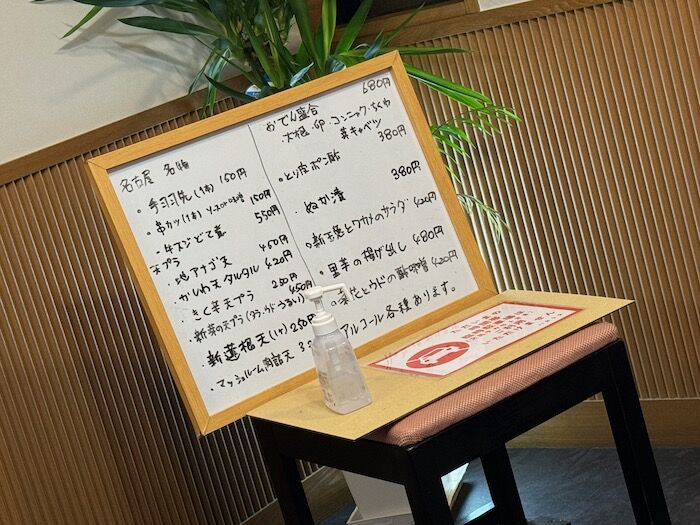 名古屋 名物
・手羽先(1本) 150円
・串カツ(1本) ソース or 味噌 150円
・牛スジどて煮 550円
天プラ
・地アナゴ天 450円
・かしわ天タルタル 420円
・きく芋天プラ 250円
・新芽の天プラ 450円
・新蓮根天(1ケ) 250円
・マッシュルーム肉詰天
おでん盛合 680円
大根・卵・コンニャク・ちくわ
芽キャベツ 380円
・とり皮ポン酢
380円
・ぬか漬
・新玉葱とワカメのサラダ 420円
・里芋の揚げ出し 480円
菜花とウドの酢味噌 420円
アルコール各種あります。